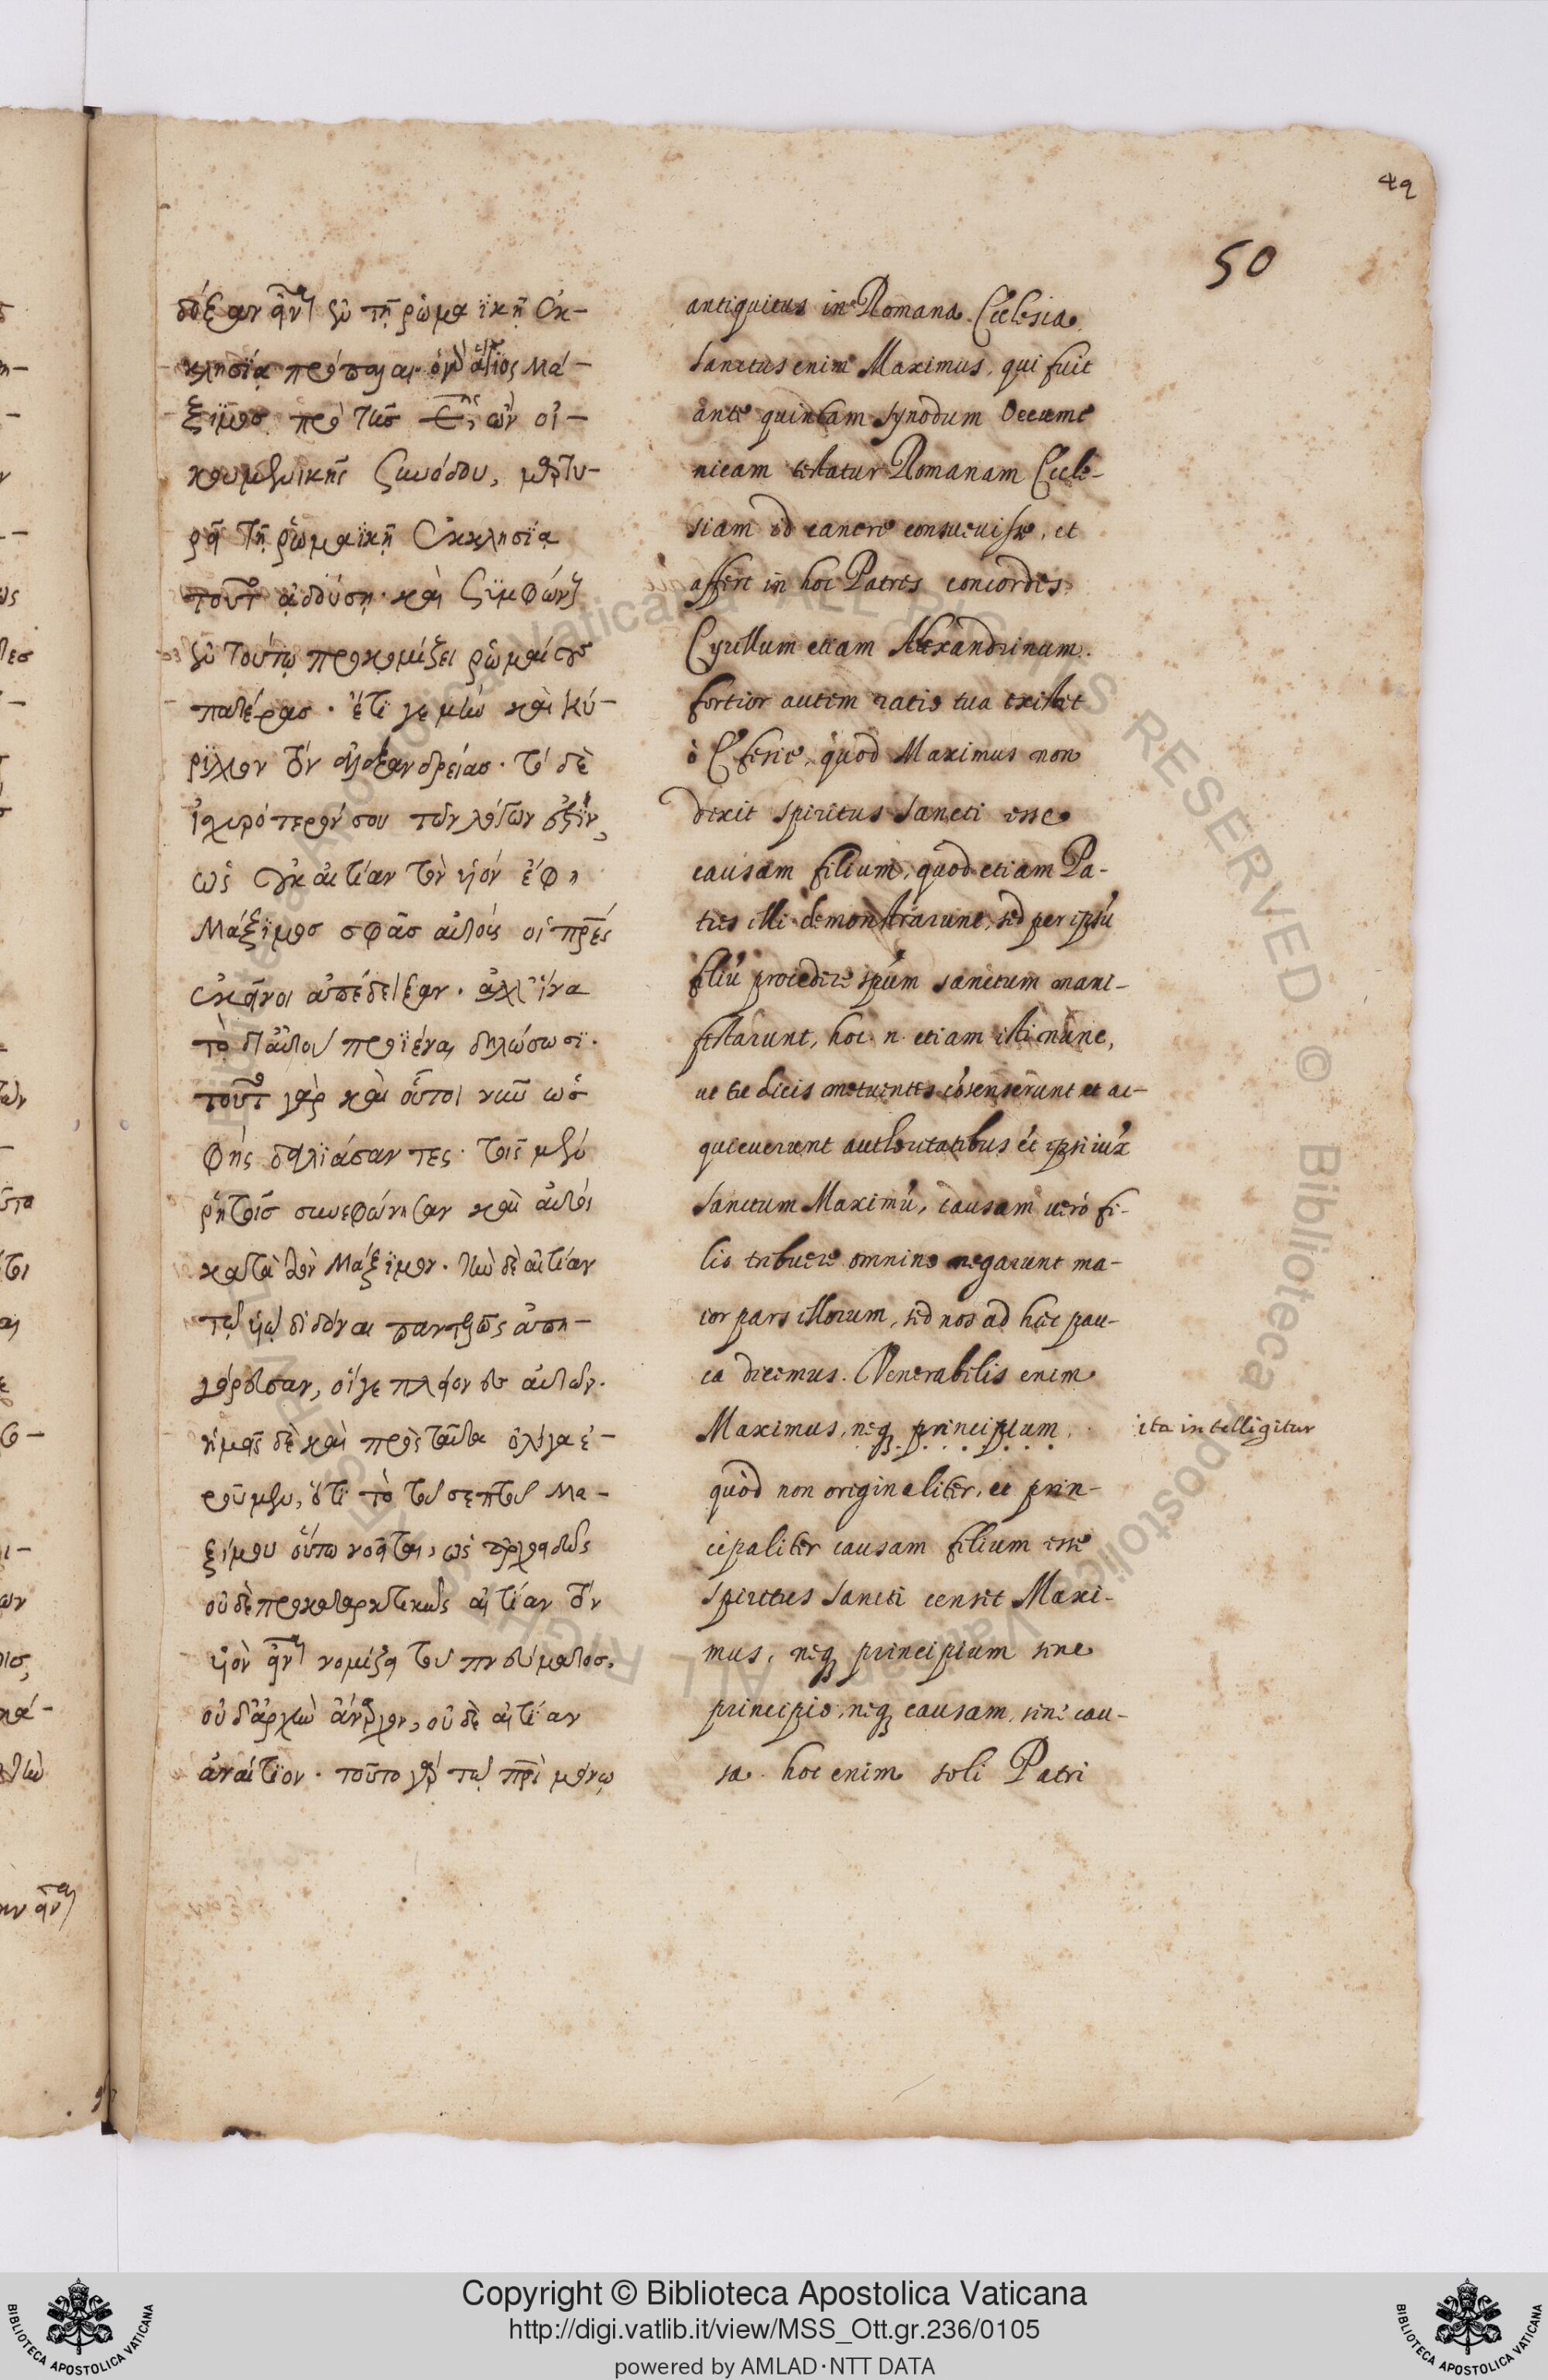 49
50
δόξαν εἶναι ἐν τῇ ῥωμαϊκῇ ἐκ-
κλησίᾳ πρόπαλαι· ὁ γὰρ ἅγιος Μά-
ξϊμος πρὸ τῆς ϛης ὢν οἰ-
κουμενικῆς ζυνόδου, μαρτυ-
ρεῖ τῇ ῥωμαϊκῇ ἐκκλησίᾳ
τοῦτο ᾀδούσῃ· καὶ
ἐν τούτῳ προκομίζει ῥωμαίους
πατέρας· ἔτι γε μὴν καὶ Κύ-
ριλλον τὸν ἀλεξανδρείας· τὸ δὲ
ἰσχυρότερόν σου τῶν λόγων ἐστὶν,
ὡς οὐκ αἰτίαν τὸν υἱὸν ἔφη
Μάξϊμος σφᾶς αὐτοὺς οἱ πρές
ἐκεῖνοι ἀπέδειξαν· ἀλλ' ἵνα
τὸ δι' αὐτοῦ προϊέναι δηλώσωσϊ·
τοῦτο γὰρ καὶ οὗτοι νῦν ὡς
φῂς δειλιάσαντες· τοῖς μὲν
ῥητοῖς συνεφώνησαν καὶ αὐτοὶ
κατὰ τὸν Μάξϊμον· τὴν δὲ αἰτίαν
τῷ υἱῷ διδόναι παντελῶς ἀπη-
γόρευσαν, οἵ γε πλεῖον αὐτῶν·
ἡμεῖς δὲ καὶ πρὸς ταῦτα ὀλίγα ἐ-
ροῦμεν, ὅτι τὸ τοῦ σεπτοῦ Μα-
ξίμου οὕτω νοεῖται, ὡς ἀρχοειδῶς
οὐδὲ προκαταρκτικῶς αἰτίαν τὸν
υἱὸν εἶναι νομίζει τοῦ πνεύματος,
οὐδ' ἀρχὴν ἄναρχον, οὐδὲ αἰτίαν
ἀναίτϊον· τοῦτο γὰρ τῷ πρὶ μόνῳ
antiquitus in Romana Ecclesia
Sanctus enim Maximus, qui fuit
ante quintam synodum Oecume
nicam testatur Romanam Eccle-
siam id canere consuevisse, et
affert in hoc Patres concordes
Cyrillum etiam Alexandrinum.
fortior autem ratio tua existit
ò Ephesie, quod Maximus non
dixit Spiritus Sancti esse
causam filium, quod etiam Pa-
tres illi demonstrarunt, sed per ipsū
filiū procedere spūm sanctum mani-
festarunt, hoc n. etiam isti nunc,
ut tu dicis metuentes cōsenserunt et ac-
quieverunt authoritatibus et ipsi iuxā
Sanctum Maximū, causam verò fi-
lio tribuere omnino negarunt ma-
ior pars illorum, sed nos ad hæc pau-
ca dicemus. Venerabilis enim
Maximus, neq; principium. ita intelligitur
quòd non originaliter, et prin-
cipaliter causam filium esse
Spiritus Sancti censit Maxi-
mus, neq; principium sine
principio, neq; causam, sine cau-
sa. hoc enim soli Patri
Copyright © Biblioteca Apostolica Vaticana
http://digi.vatlib.it/view/MSS_Ott.gr.236/0105
powered by AMLAD·NTT DATA
BIBLIOTECA APOSTOLICA VATICANA
BIBLIOTECA APOSTOLICA VATICANA